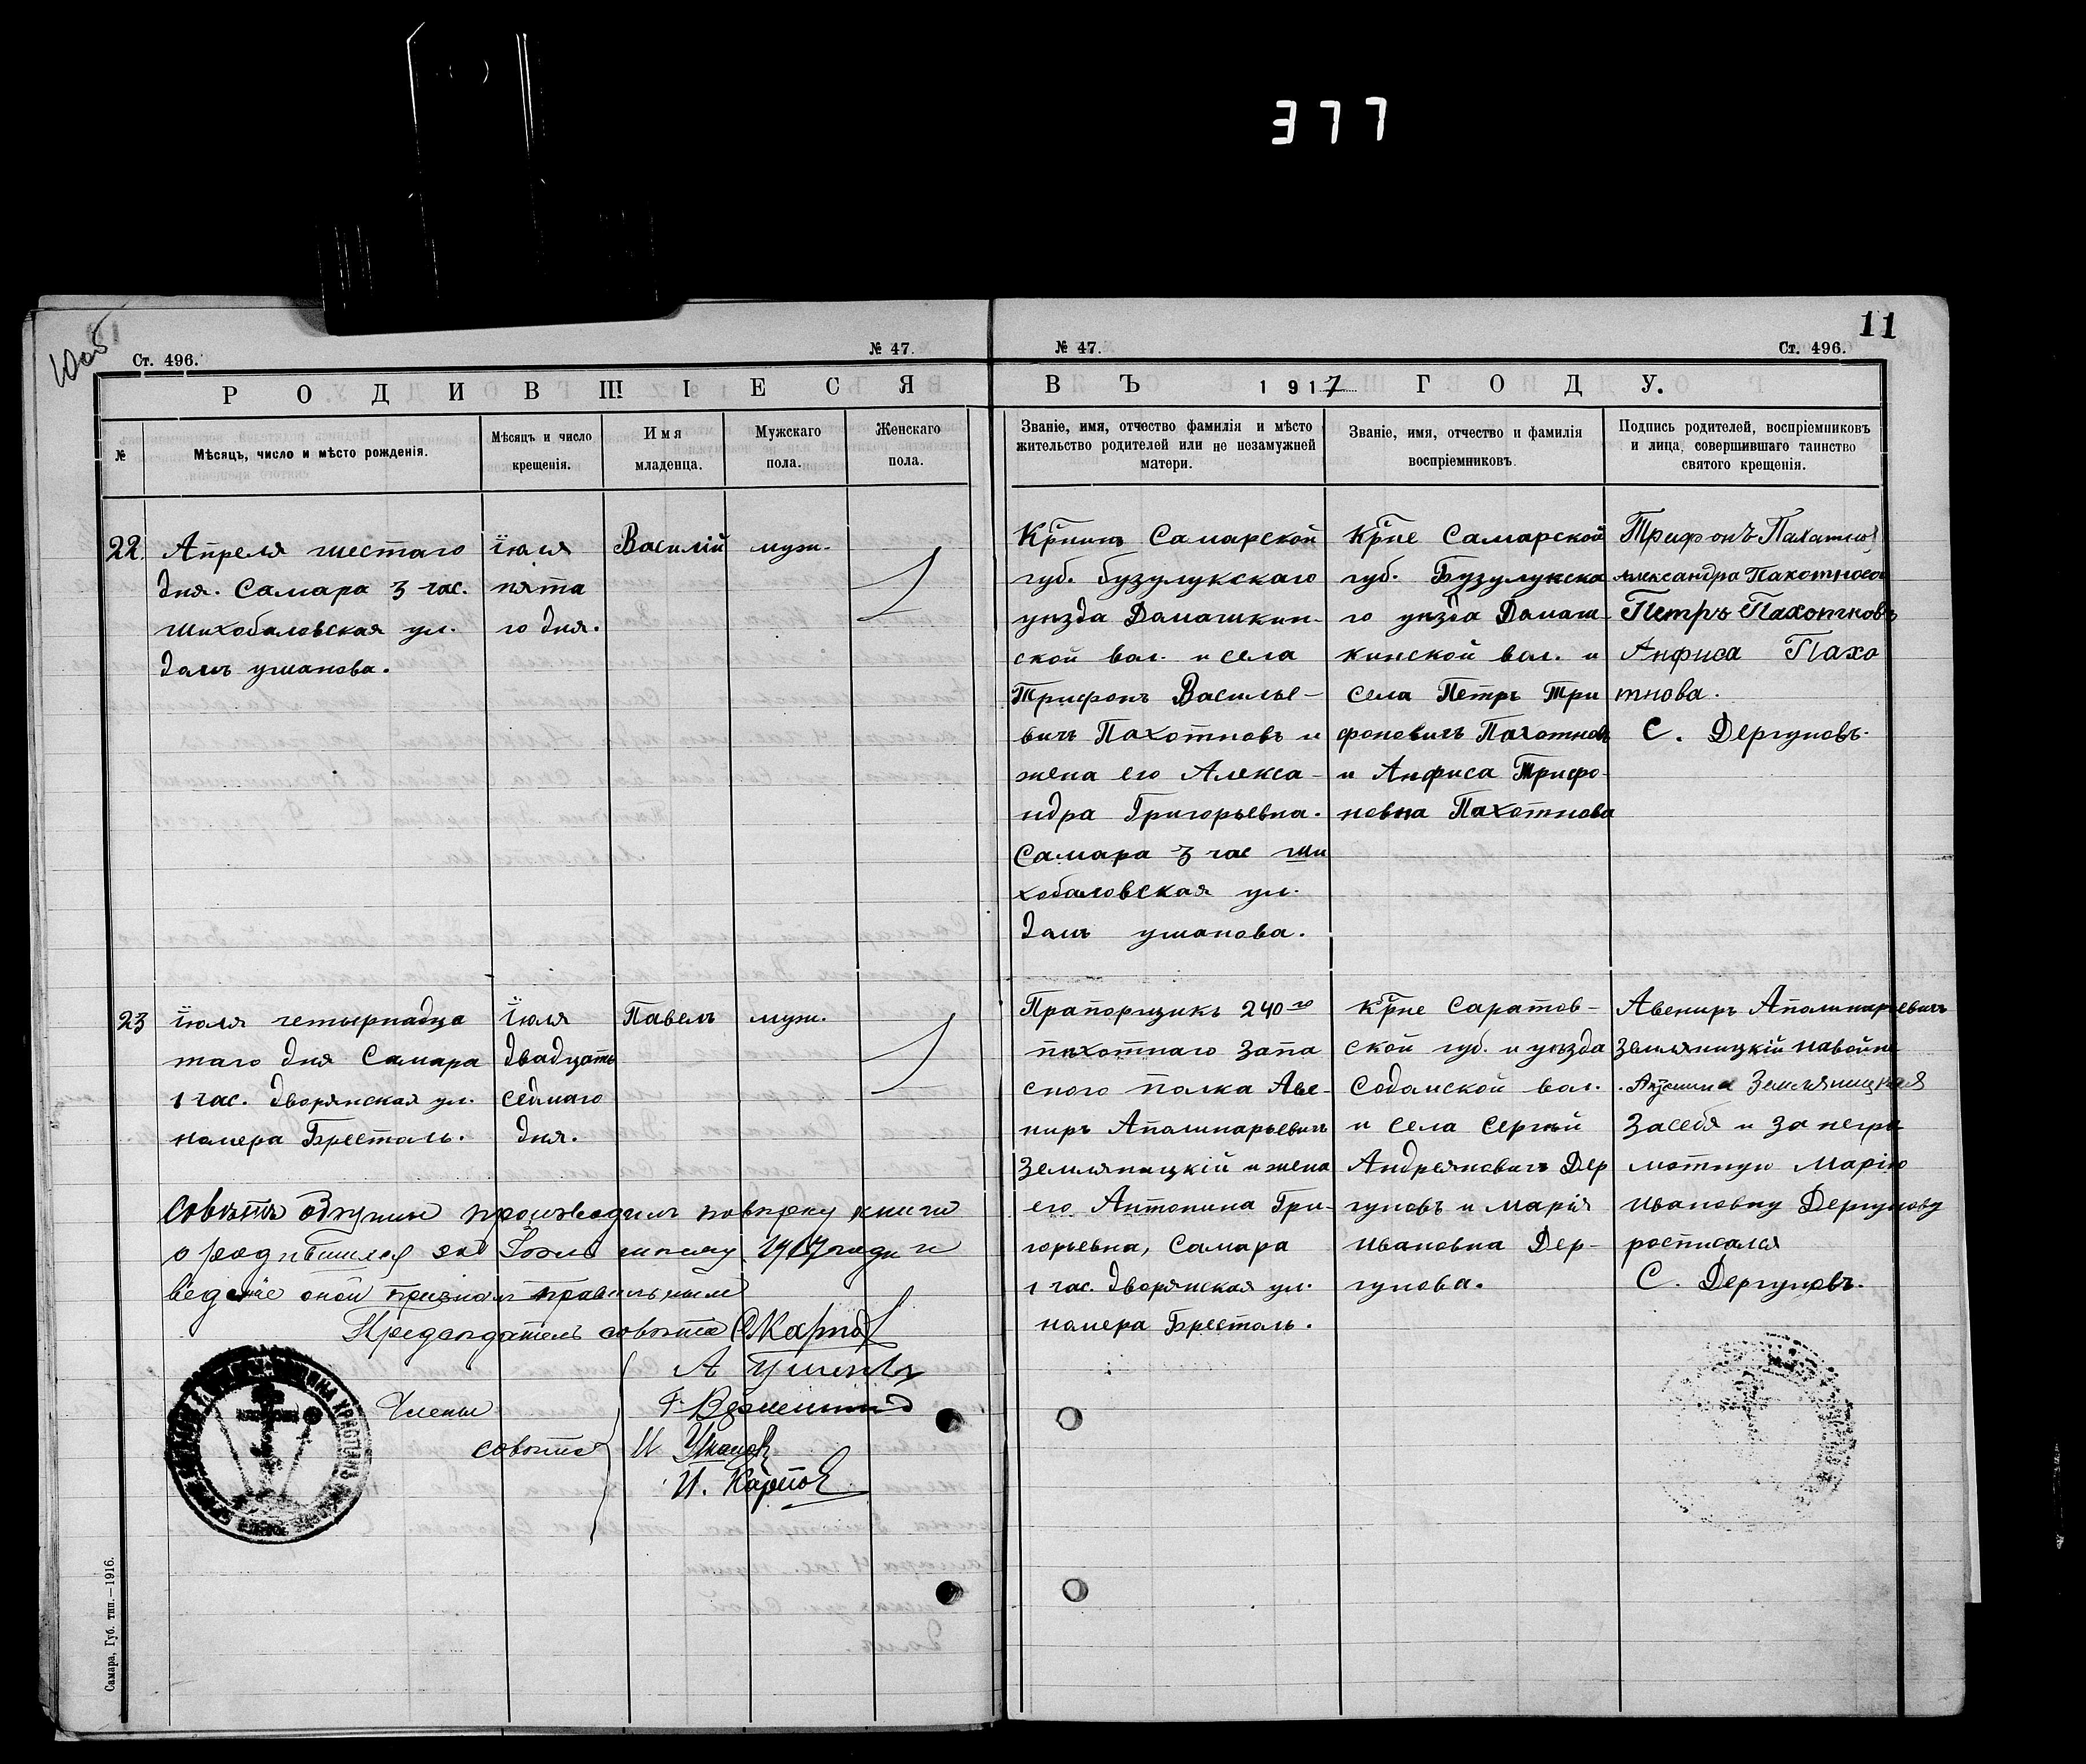 377
11
Ст. 496.
№ 47.
№ 47.
Ст. 496.
РОДИВШІЕСЯ
ВЪ 1917 ГОДУ.
№
Мѣсяцъ, число и мѣсто рожденія.
Мѣсяцъ и число
крещенія.
Имя
младенца.
Мужскаго
пола.
Женскаго
пола.
Званіе, имя, отчество фамилія и мѣсто
жительство родителей или не незамужней
матери.
Званіе, имя, отчество и фамилія
воспріемниковъ.
Подпись родителей, воспріемниковъ
и лица, совершившаго таинство
святого крещенія.
22.
Апреля шестаго
дня. Самара 3 час.
шихобаловская ул.
домъ ушанова.
іюля
пята
го дня.
Василій
муж.
Кр҃нинъ Самарской
губ. бузулукскаго
уѣзда Домашкин-
ской вол. и села
Трифонъ Василье-
вичъ Пахотновъ и
жена его Алекса-
ндра Григорьевна.
Самара 3 час ши
хобаловская ул.
домъ ушанова.
Кр҃не Самарской
губ. Бузулукска
го уѣзда Домаш-
кинской вол. и
села Петръ Три
фоновичъ Пахотновъ
и Анфиса Трифо-
новна Пахотнова
Трифонъ
Александра Пахотнова
Петръ Пахотновъ
Анфиса Пахо
тнова.
С. Дергуновъ.
23
іюля четырнадца
таго дня Самара
1 час. дворянская ул.
номера Бристоль.
Іюля
двадцать
седмаго
дня.
Павелъ
муж.
Прапорщикъ 240го
пѣхотнаго запа
сного полка Аве-
ниръ Аполинарьевичъ
Земляницкій и жена
его Антонина Гри-
горьевна, Самара
1 час. дворянская ул.
номера Бристоль.
кр҃не Саратов-
ской губ. и уѣзда
Содомской вол.
и села Сергѣй
Андреяновичъ Дер
гуновъ и Марія
Ивановна Дер-
гунова.
Авениръ Аполинарьевичъ
Земляницкій
Антонина Земляницкая
За себя и за негра
мотную Марію
Ивановну Дергунову
росписался
С. Дергуновъ.
Совѣтъ общины производилъ повѣрку книги
о родившихся за 1917 годъ и
веденіе оной призналъ правильнымъ
Председатель совѣта С Карпов
А Ушанов
Члены
совѣта
И Ушанов
И. Карпов
Самара, Губ. тип.—1916.